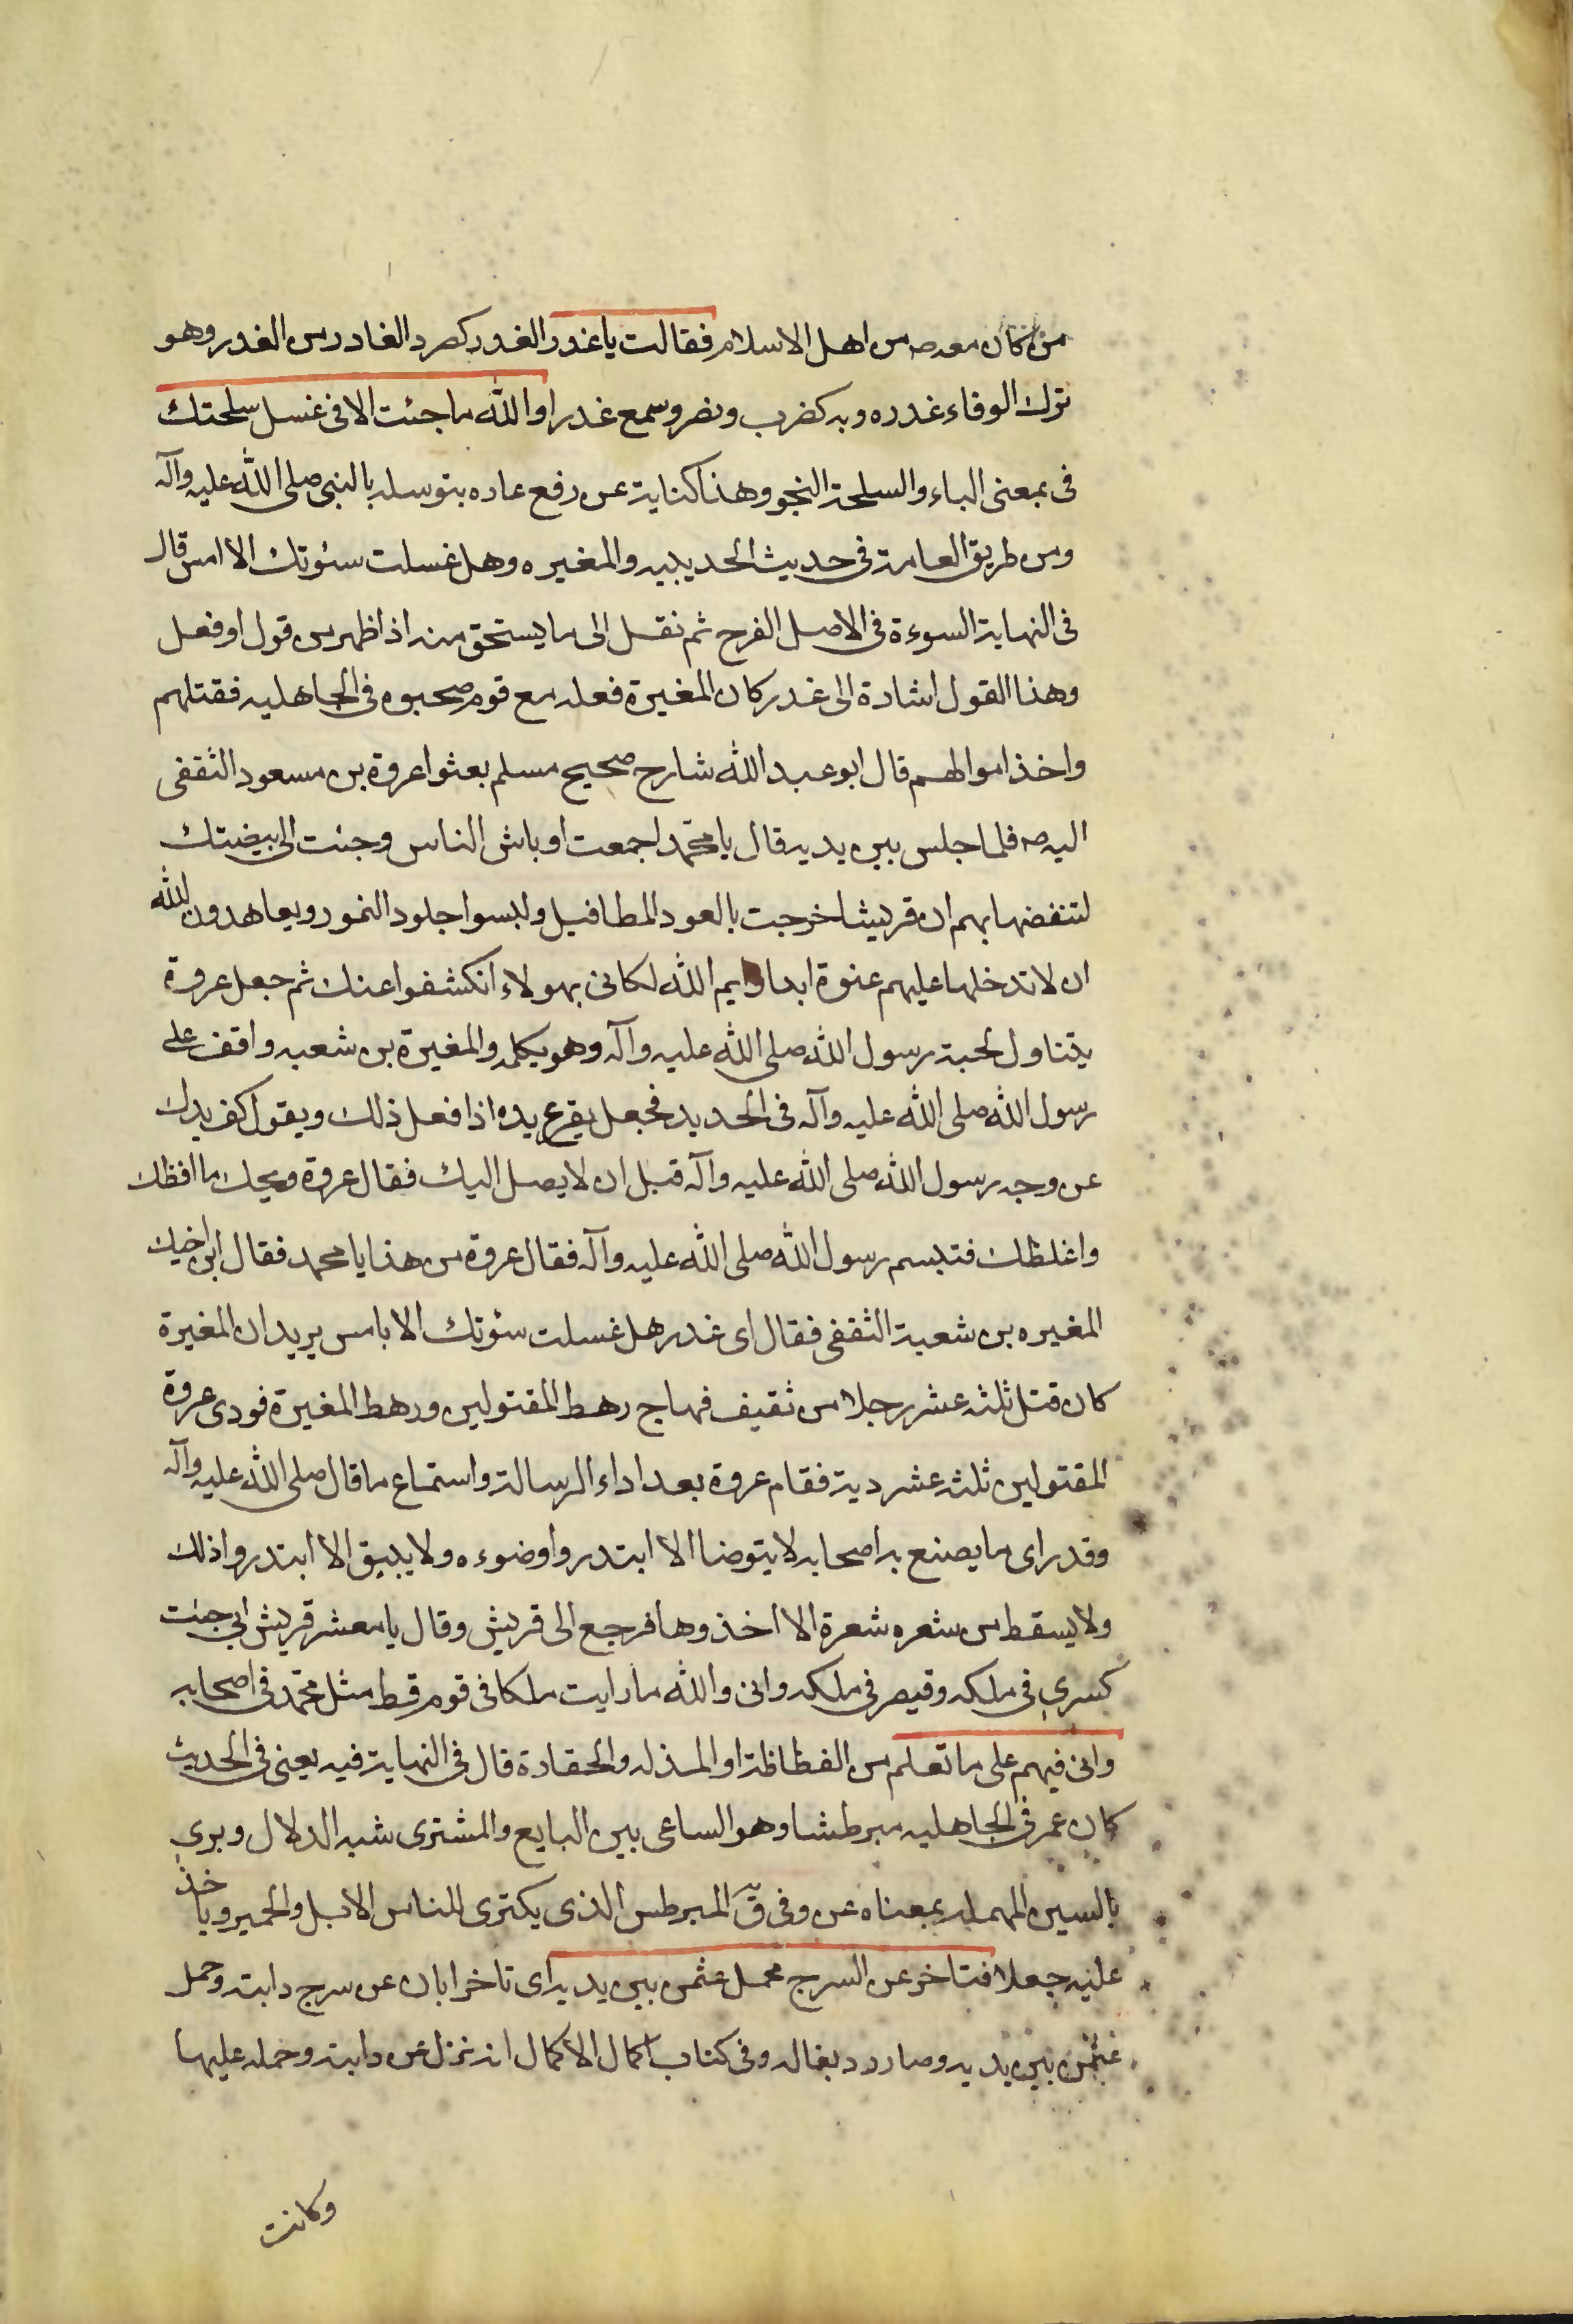 من كان معه ص من اهل الاسلام فقالت يا غدر الغدر كصرد الغادر من الغدر وهو
ترك الوفاء غدره وبه كضرب ونصر وسمع غدرا والله ما جئت الا فى غسل سلحتك
فى بمعنى الباء والسلحة النجو وهذا كناية عن رفع عاره بتوسله بالنبى صلى الله عليه وآله
ومن طريق العامة فى حديث الحديبيه والمغيره وهل غسلت سئوتك الا امس قال
فى النهاية السوءة فى الاصل الفرج ثم نقل الى ما يستحق منه اذا ظهر من قول او فعل
وهذا القول اشارة الى غدر كان المغيرة فعله مع قوم صحبوه فى الجاهليه فقتلهم
واخذ اموالهم قال ابو عبد الله شارح صحيح مسلم بعثوا عروة بن مسعود الثقفى
اليه ص فلما جلس بين يديه قال يا محمد اجمعت اوباش الناس وجئت الى بيضتك
لتنفضها بهم ان قريشا خرجت بالعود المطافيل ولبسوا جلود النمور ويعاهدون الله
ان لا تدخلها عليهم عنوة ابدا وايم الله لكانى بهولاء انكشفوا عنك ثم جعل عروة
يتناول لحية رسول الله صلى الله عليه وآله وهو يكلمه والمغيرة بن شعبه واقف على
رسول الله صلى الله عليه وآله فى الحديد فجعل يقرع يده اذا فعل ذلك ويقول كف يدك
عن وجه رسول الله صلى الله عليه وآله قبل ان لا يصل اليك فقال عروة ويحك ما افظك
واغلظك فتبسم رسول الله صلى الله عليه وآله فقال عروة من هذا يا محمد فقال ابن اخيك
المغيره بن شعبة الثقفى فقال اى غدر هل غسلت سئوتك الا بامس يريد ان المغيرة
كان قتل ثلثه عشر رجلا من ثقيف فهاج رهط المقتولين ورهط المغيرة فودى عروة
المقتولين ثلثه عشر دية فقام عروة بعد اداء الرسالة واستماع ما قال صلى الله عليه وآله
وقد راى ما يصنع به اصحابه لا يتوضا الا ابتدروا وضوءه ولا يبصق الا ابتدروا ذلك
ولا يسقط من شعره شعرة الا اخذوها فرجع الى قريش وقال يا معشر قريش انى جئت
كسرى فى ملكه وقيصر فى ملكه وانى والله ما رايت ملكا فى قوم قط مثل محمد فى اصحابه
وانى فيهم على ما تعلم من الفظاظة او المذله والحقارة قال فى النهاية فيه يعنى فى الحديث
كان عمر فى الجاهليه مبرطشا وهو الساعى بين البايع والمشترى شبه الدلال ويرى
بالسين المهمله بمعناه عن وفى ق المبرطس الذى يكترى للناس الابل والحمير وياخذ
عليه جعلا فتاخر عن السرج فحمل عثمن بين يديه اى تاخر ابان عن سرج دابته وحمل
عثمن بين يديه وصار رديفا له وفى كتاب اكمال الاكمال انه نزل عن دابته وحمله عليها
وكانت